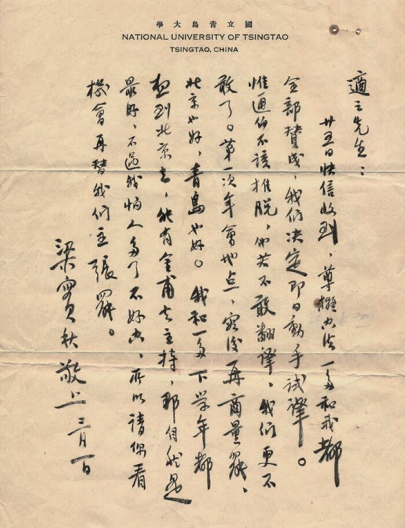 學大島青立國
NATIONAL UNIVERSITY OF TSINGTAO
TSINGTAO, CHINA
適之先生：
廿五日快信收到，尊擬办法一多和我都
全部贊成，我们决定即日動手試譯。
惟通伯不該推脱，他若不敢翻譯，我们更不
敢了。第一次年會地点，容後再商量罷，
北京也好，青島也好。我和一多下学年都
想到北京去，能有金甫去主持，那自然是
最好，不過我怕人多了不好办，所以請你看
機會再替我们主張罷。
梁實秋敬上 三月一日